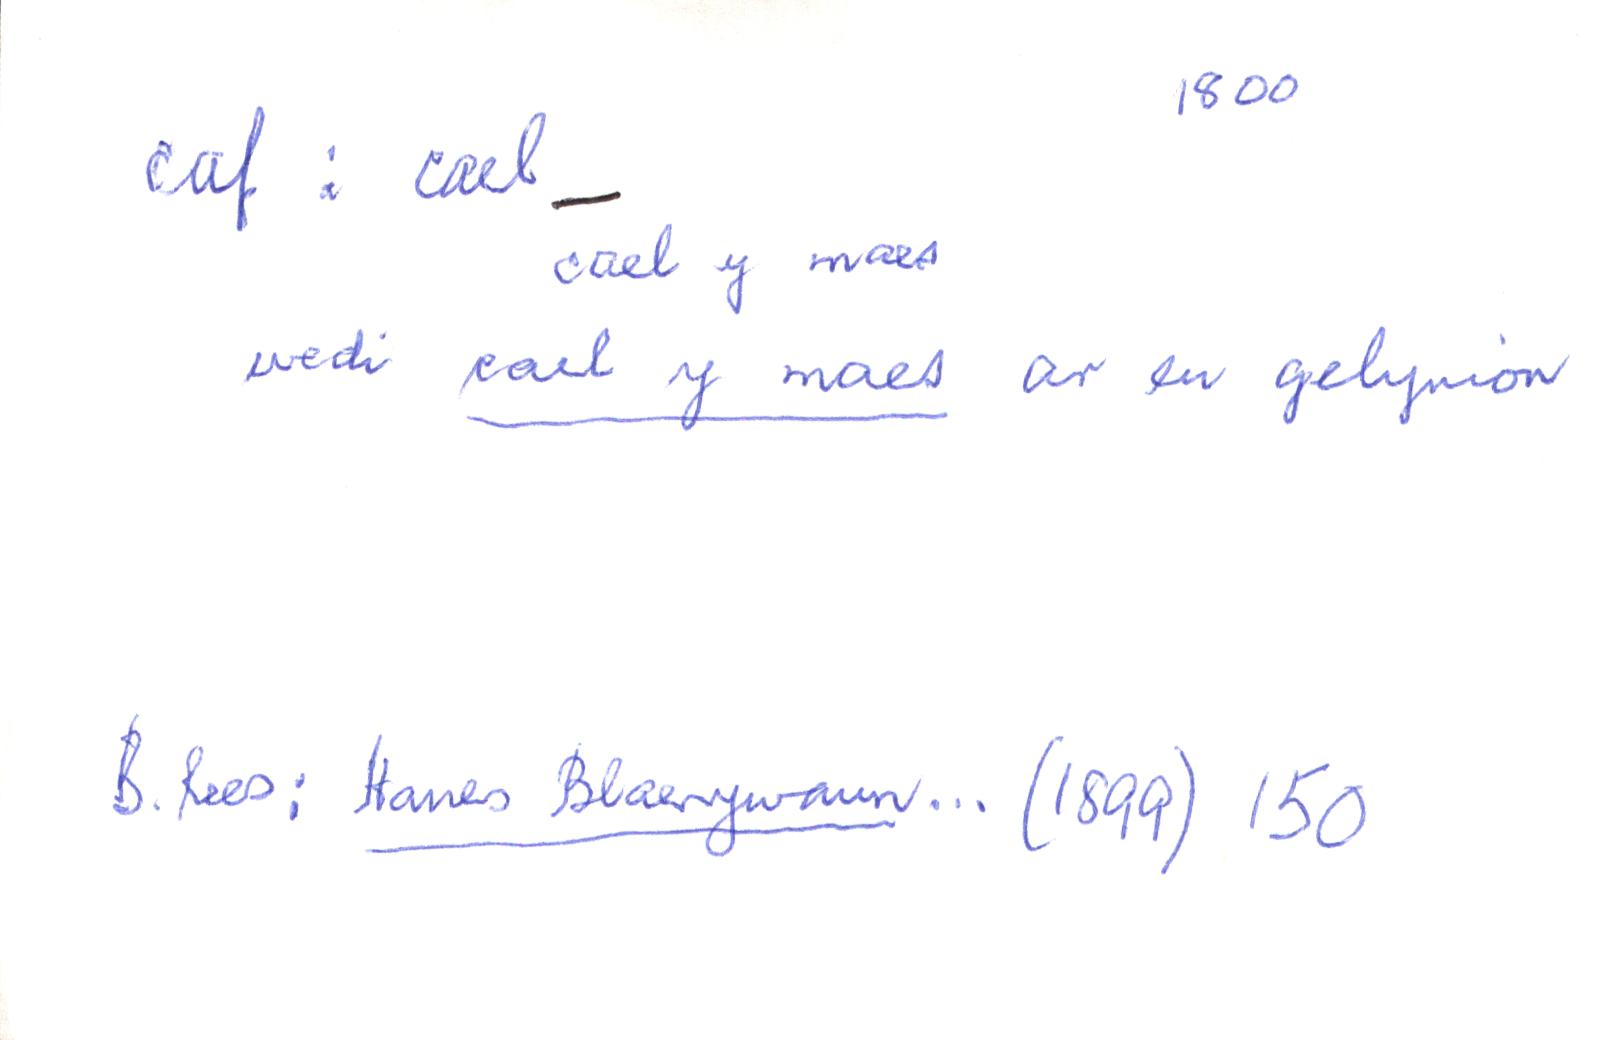 1800
caf : cael
cael y maes
wedi cael y maes ar eu gelynion
B. Rees; Hanes Blaenywaun... (1899) 150